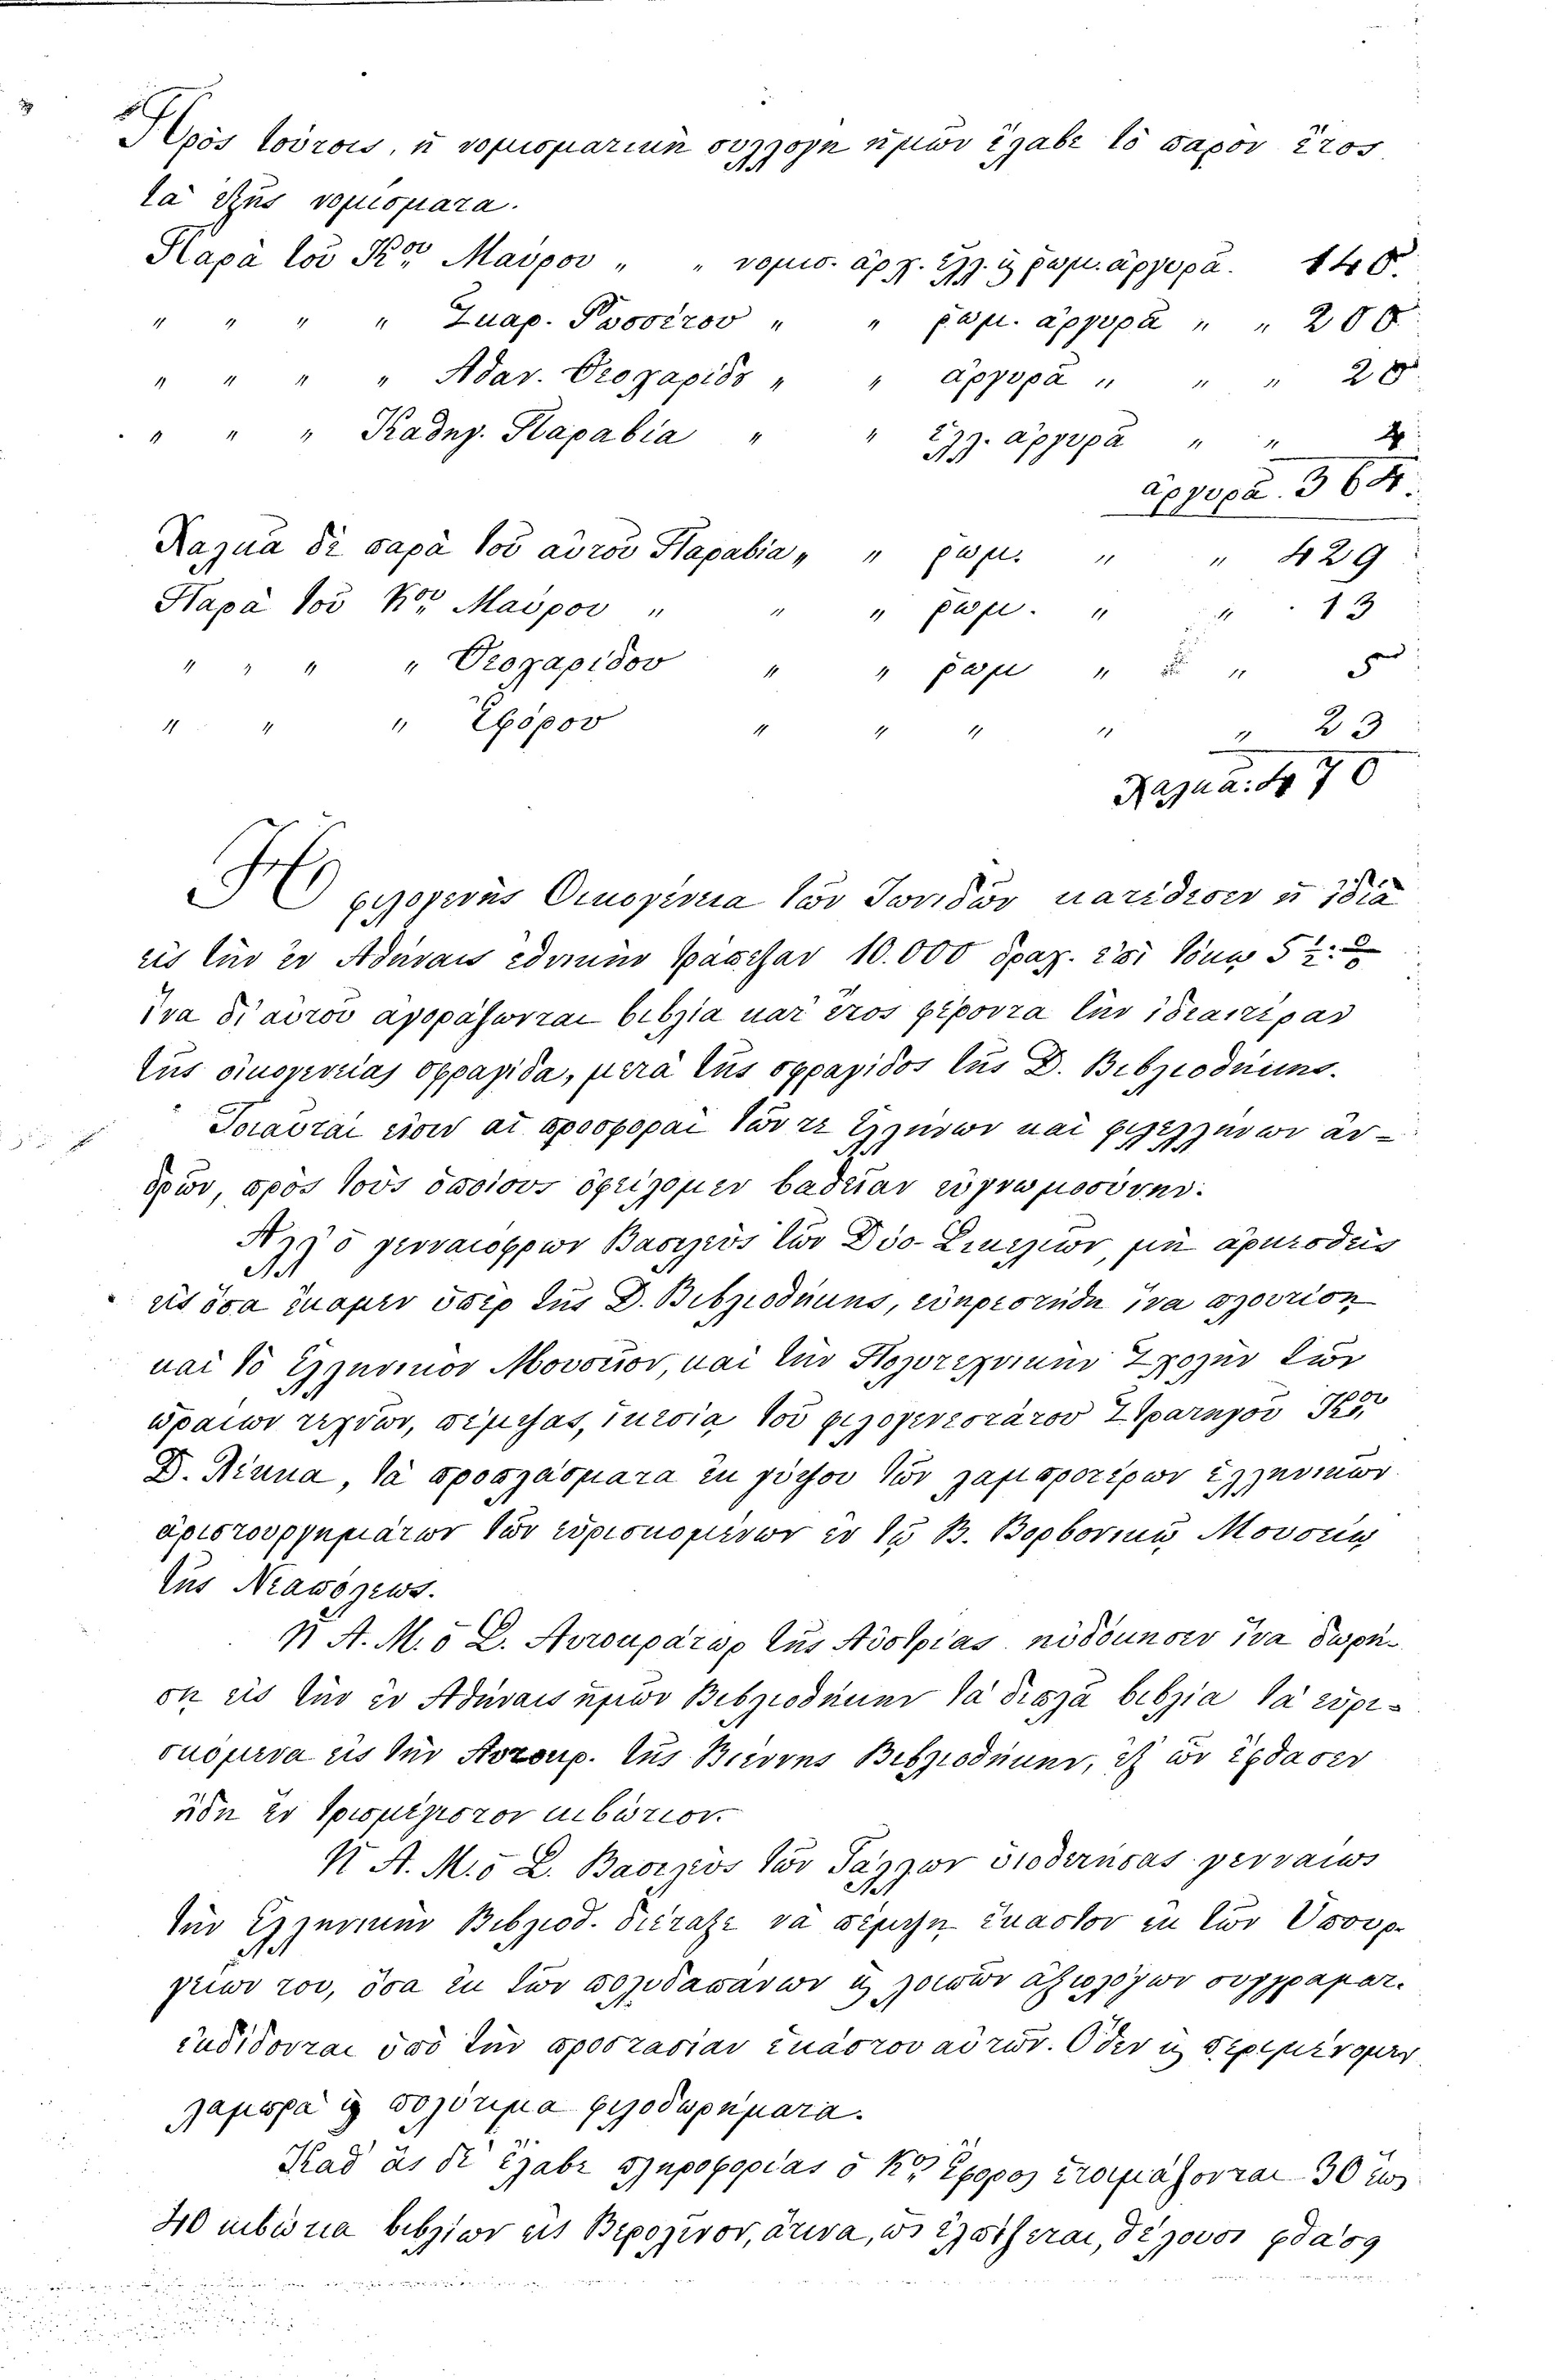 Πρὸς τούτοις, ἡ νομισματικὴ συλλογὴ ἡμῶν ἔλαβε τὸ παρὸν ἔτος
τὰ ἑξῆς νομίσματα.
Παρὰ τοῦ Κου Μαύρου " " νομισ. ἀρχ. ἑλλ. ϗ ρωμ. ἀργυρᾶ. 140.
" " " " Ζηαρ. " " ρωμ. ἀργυρᾶ " " 200
" " " " Ἀθαν. Θεοχαρίδο " " ἀργυρᾶ " " " 20
" " " Καθηγ. Παπαβία " " ἑλλ. ἀργυρᾶ " " 4
ἀργυρᾶ. 364.
Χαλκᾶ δὲ παρὰ τοῦ αὐτοῦ Παπαβία " " ρωμ. " " 429
Παρὰ τοῦ Κου Μαύρου " " " ρωμ. " " 13
" " " " Θεοχαρίδου " " ρωμ " " 5
" " " Ἐφόρου " " " " " 23
Χαλκᾶ: 470
Ἡ φιλογενὴς Οἰκογένεια τῶν Ζωσιδῶν κατέθεσεν ἡ ἰδία
εἰς τὴν ἐν Ἀθήναις ἐθνικὴν τράπεζαν 10.000 δραχ. ἐπὶ τόκῳ 5
ἵνα δι' αὐτοῦ ἀγοράζωνται βιβλία κατ' ἔτος φέροντα τὴν ἰδιαιτέραν
τῆς οἰκογενείας σφραγίδα, μετὰ τῆς σφραγίδος τῆς Δ. Βιβλιοθήκης.
Τοιαῦται εἰσὶν αἱ προσφοραὶ τῶν τε Ἑλλήνων καὶ φιλελλήνων ἀν-
δρῶν, πρὸς τοὺς ὁποίους ὀφείλομεν βαθεῖαν εὐγνωμοσύνην.
Ἀλλ' ὁ γενναιόφρων Βασιλεὺς τῶν Δύο Σικελιῶν, μὴ ἀρκεσθεὶς
εἰς ὅσα ἔκαμεν ὑπὲρ τῆς Δ. Βιβλιοθήκης, εὐηρεστήθη ἵνα πλουτίσῃ
καὶ τὸ Ἑλληνικὸν Μουσεῖον, καὶ τὴν Πολυτεχνικὴν Σχολὴν τῶν
ὡραίων τεχνῶν, πέμψας, αἰτήσει τοῦ φιλογενεστάτου Στρατηγοῦ Κου
Δ. Λέκκα, τὰ προπλάσματα ἐκ γύψου τῶν λαμπροτέρων ἑλληνικῶν
ἀριστουργημάτων τῶν εὑρισκομένων ἐν τῷ Β. Βορβονικῷ Μουσείῳ
τῆς Νεαπόλεως.
Ἡ Α. Μ. ὁ Σ. Αὐτοκράτωρ τῆς Αὐστρίας ηὐδόκησεν ἵνα δωρή-
σῃ εἰς τὴν ἐν Ἀθήναις ἡμῶν Βιβλιοθήκην τὰ διπλᾶ βιβλία τὰ εὑρι-
σκόμενα εἰς τὴν Αὐτοκρ. τῆς Βιέννης Βιβλιοθήκην, ἐξ ὧν ἔφθασεν
ἤδη ἓν τρισμέγιστον κιβώτιον.
Ἡ Α. Μ. ὁ Σ. Βασιλεὺς τῶν Γάλλων ὑποστηρίξας γενναίως
τὴν Ἑλληνικὴν Βιβλιοθ. διέταξε νὰ πέμψῃ ἕκαστον ἐκ τῶν Ὑπουρ-
γείων του, ὅσα ἐκ τῶν πολυδαπάνων ϗ λοιπῶν ἀξιολόγων συγγραμμάτ.
ἐκδίδονται ὑπὸ τὴν προστασίαν ἑκάστου αὐτῶν. Ὅθεν ϗ περιμένομεν
λαμπρὰ ϗ πολύτιμα φιλοδωρήματα.
Καθ' ἃς δὲ ἔλαβε πληροφορίας ὁ Κος Ἔφορος ἑτοιμάζονται 30 ἕως
40 κιβώτια βιβλίων εἰς Βερολίνον, ἅτινα, ὡς ἐλπίζεται, θέλουσι φθάσῃ